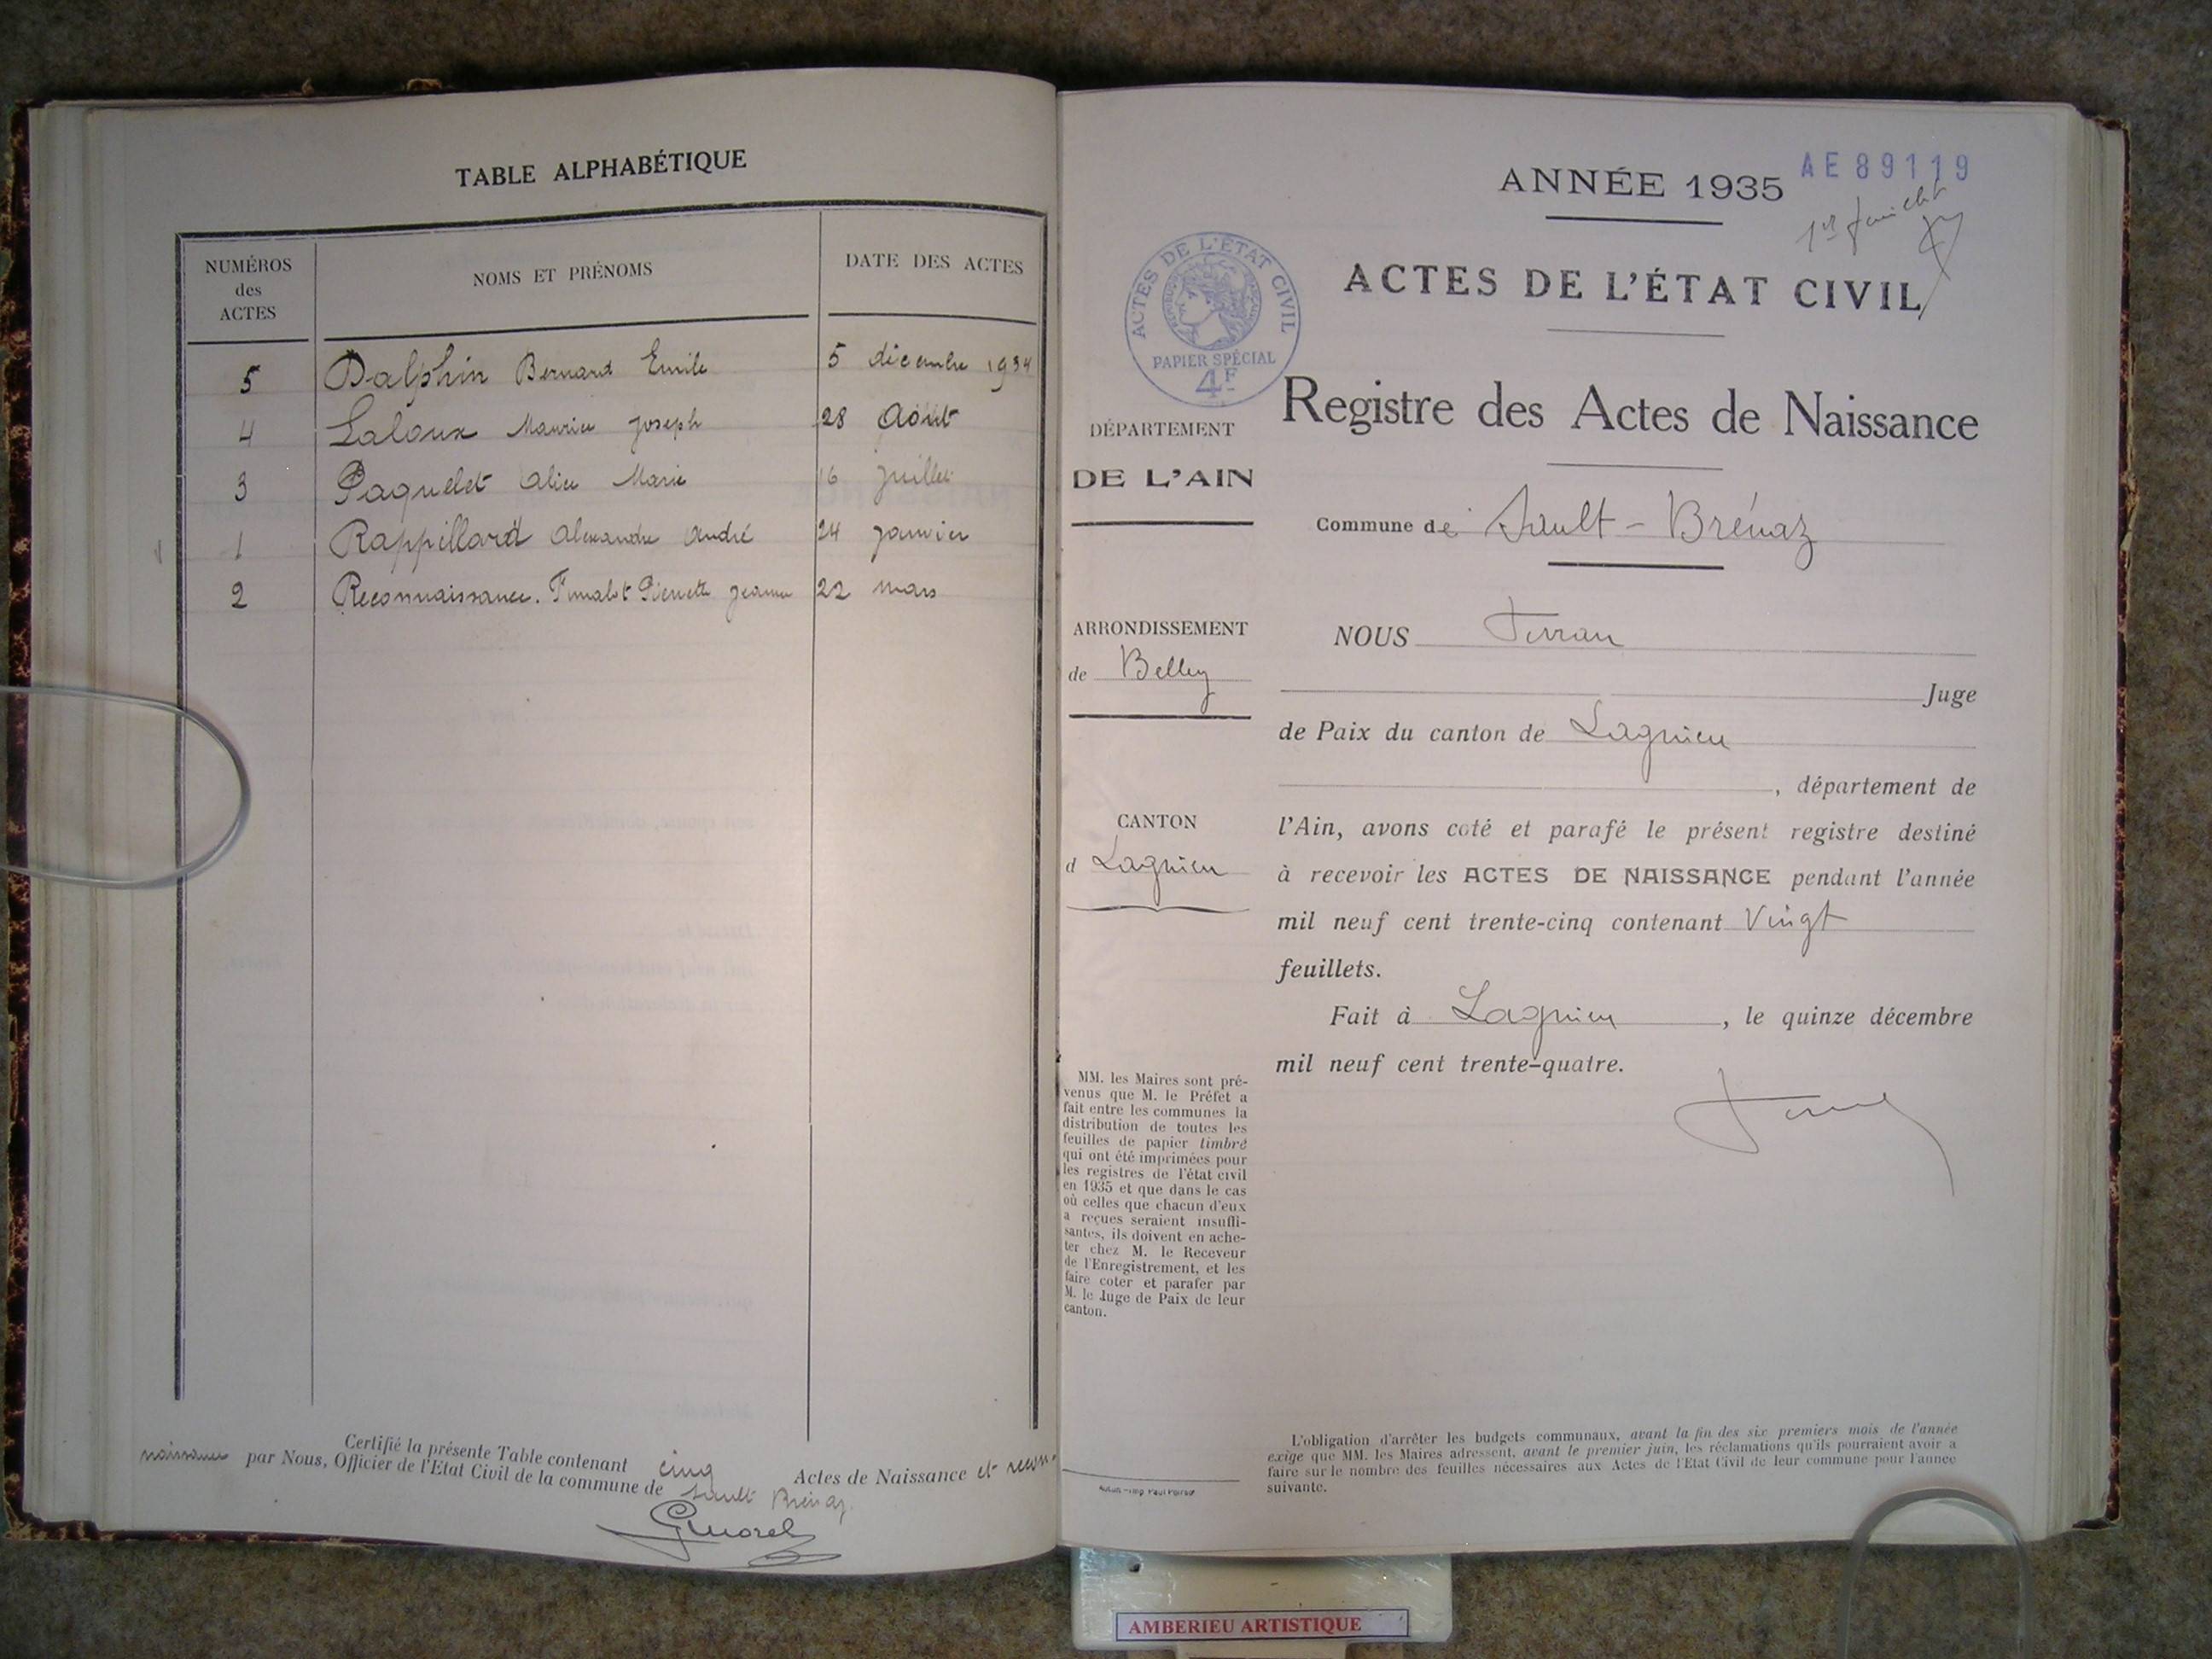 TABLE ALPHABÉTIQUE
NUMÉROS
des
ACTES
NOMS ET PRÉNOMS
DATE DES ACTES
5 Dalphin Bernard Emile 5 décembre 1934
4 Laloux Maurice Joseph 28 Août
3 Paquelet Alice Marie 16 juillet
1 Rappillard Alexandre André 24 janvier
2 Reconnaissance. Pierrette Jeanne 22 mars
Certifié la présente Table contenant cinq Actes de Naissance et recon-
naissance par Nous, Officier de l'Etat Civil de la commune de Sault Brénaz.
GMorel
ANNÉE 1935
AE89119
1er feuillet
ACTES DE L'ÉTAT CIVIL
ACTES DE L'ÉTAT CIVIL
PAPIER SPÉCIAL
4F
Registre des Actes de Naissance
DÉPARTEMENT
DE L'AIN
Commune de Sault-Brénaz
ARRONDISSEMENT
de Belley
CANTON
d Lagnieu
NOUS
Juge
de Paix du canton de Lagnieu
, département de
l'Ain, avons coté et parafé le présent registre destiné
à recevoir les ACTES DE NAISSANCE pendant l'année
mil neuf cent trente-cinq contenant Vingt
feuillets.
Fait à Lagnieu, le quinze décembre
mil neuf cent trente-quatre.
MM. les Maires sont pré-
venus que M. le Préfet a
fait entre les communes la
distribution de toutes les
feuilles de papier timbré
qui ont été imprimées pour
les registres de l'état civil
en 1935 et que dans le cas
où celles que chacun d'eux
a reçues seraient insuffi-
santes, ils doivent en ache-
ter chez M. le Receveur
de l'Enregistrement, et les
faire coter et parafer par
M. le Juge de Paix de leur
canton.
L'obligation d'arrêter les budgets communaux, avant la fin des six premiers mois de l'année
exige que MM. les Maires adressent, avant le premier juin, les réclamations qu'ils pourraient avoir a
faire sur le nombre des feuilles nécessaires aux Actes de l'Etat Civil de leur commune pour l'année
suivante.
AMBERIEU ARTISTIQUE